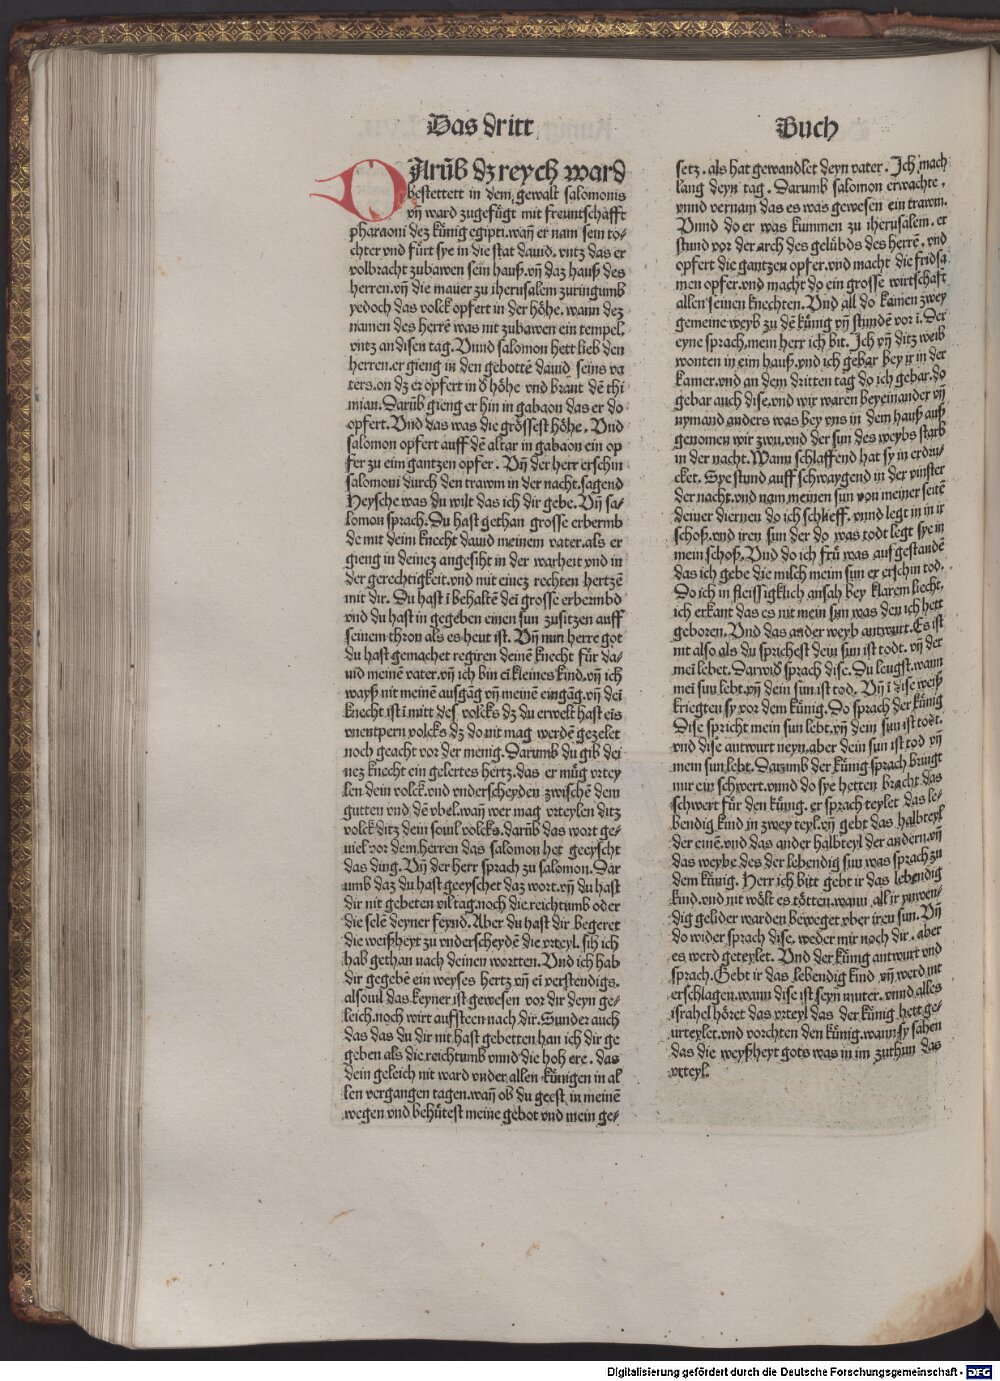 Das dritt
Buch
DArūb dz reych ward
bestettett in dem gewalt salomonis
vñ ward zugefůgt mit freuntschafft
pharaoni dez kůnig egipti.wañ er nam sein to⸗
chter vnd fůrt sye in die stat dauid. vntz das er
volbracht zubawen sein hauß.vñ daz hauß des
herren.vñ die mauer zu iherusalem zuringumb
yedoch das volck opfert in der hőhe. wann dez
namen des herrē was nit zubawen ein tempel.
vntz an disen tag. Vnnd salomon hett lieb den
herren.er gieng in den gebottē dauid seins va
ters.on dz er opfert in d̕ hőhe vnd brant dē thi
mian. Darūb gieng er hin in gabaon das er do
opfert. Vnd das was die grőssest hőhe. Vnd
salomon opfert auff dē altar in gabaon ein op
fer zu eim gantzen opfer. Vñ der herr erschin
salomoni durch den trawm in der nacht.sagend
Heysche was du wilt das ich dir gebe. Vñ sa⸗
lomon sprach. Du hast gethan grosse erbermb
de mit deim knecht dauid meinem vater.als er
gieng in deinez angesiht in der warheit vnd in
der gerechtigkeit.vnd mit einez rechten hertzē
mit dir. Du hast ī behaltē dei grosse erbermbd
vnd du hast in gegeben einen sun zusitzen auff
seinem thron als es heut ist. Vñ nun herre got
du hast gemachet regiren deinē knecht fůr da⸗
uid meinē vater.vñ ich bin eī kleines kind.vñ ich
wayß nit meinē außgāg vñ meinē eingāg.vñ deī
knecht ist ī mitt des volcks dz du erwelt hast eis
vnentpern volcks dz do nit mag werdē gezelet
noch geacht vor der menig. Darumb du gib dei
nez knecht ein gelertes hertz.das er můg vrtey
len dein volck.vnd vnderscheyden zwischē dem
gutten vnd dē vbel.wañ wer mag vrteylen ditz
volck ditz dein souil volcks. darūb das wort ge⸗
uiel vor dem herren das salomon het geeyscht
das ding. Vñ der herr sprach zu salomon. Dar
umb daz du hast geeyschet daz wort.vñ du hast
dir nit gebeten vil tag.noch die reichtumb oder
die selē deyner feynd. Aber du hast dir begeret
die weißheyt zu vnderscheydē die vrteyl. sih ich
hab gethan nach deinen wortten. Vnd ich hab
dir gegebē ein weyses hertz vñ eī verstendigs.
alsouil das keyner ist gewesen vor dir deyn ge⸗
leich.noch wirt auffsteen nach dir. Sunder auch
das das du dir nit hast gebetten.han ich dir ge
geben als die reichtumb vnnd die hoh ere. das
dein geleich nit ward vnder allen kůnigen in al
len vergangen tagen.wañ ob du geest in meinē
wegen vnd behůtest meine gebot vnd mein ge⸗
setz. als hat gewandlet deyn vater. Ich mach
lang deyn tag. Darumb salomon erwachte.
vnnd vernam das es was gewesen ein trawm.
Vnnd do er was kummen zu iherusalem. er
stund vor der arch des gelůbds des herrē. vnd
opfert die gantzen opfer.vnd macht die fridsa
men opfer.vnd macht do ein grosse wirtschaft
allen seinen knechten. Vnd all do kamen zwey
gemeine weyb zu dē kůnig vñ stundē vor ī. Der
eyne sprach.mein herr ich bit. Ich vñ ditz weib
wonten in eim hauß.vnd ich gebar bey ir in der
kamer.vnd an dem dritten tag do ich gebar.do
gebar auch dise.vnd wir waren beyeinander vñ
nymand anders was bey vns in dem hauß auß
genomen wir zwu.vnd der sun des weybs starb
in der nacht. Wann schlaffend hat sy in erdru⸗
cket. Sye stund auff schwaygend in der vinster
der nacht.vnd nam meinen sun von meiner seitē
deiner diernen do ich schlieff. vnnd legt in in ir
schoß.vnd iren sun der do was todt legt sye in
mein schoß. Vnd do ich frů was aufgestandē
das ich gebe die milch meim sun er erschin tod.
Do ich in fleissigklich ansah bey klarem liecht.
ich erkant das es nit mein sun was den ich hett
geboren. Vnd das ander weyb antwurt. Es ist
nit also als du sprichest dein sun ist todt. vñ der
meī lebet. Darwid̕ sprach dise. Du leugst.wann
meī sun lebt.vñ dein sun ist tod. Vñ ī dise weiß
kriegten sy vor dem kůnig. Do sprach der kůnig
Dise spricht mein sun lebt.vñ dein sun ist todt.
vnd dise antwurt neyn.aber dein sun ist tod vñ
mein sun lebt. Darumb der kůnig sprach bringt
mir ein schwert.vnnd do sye hetten bracht das
schwert fůr den kůnig. er sprach teylet das le⸗
bendig kind in zwey teyl.vñ gebt das halbteyl
der einē.vnd das ander halbteyl der andern.vñ
das weybe des der lebendig sun was sprach zu
dem kůnig. Herr ich bitt gebt ir das lebendig
kind.vnd nit wőlt es tőtten.wann all ir ynwen⸗
dig gelider warden beweget vber iren sun. Vñ
do wider sprach dise. weder mir noch dir. aber
es werd geteylet. Vnd der kůnig antwurt vnd
sprach. Gebt ir das lebendig kind vñ werd nit
erschlagen.wann dise ist seyn muter. vnnd alles
israhel hőret das vrteyl das der kůnig hett ge⸗
urteylet.vnd vorchten den kůnig.wann sy sahen
das die weyßheyt gots was in im zuthun das
vrteyl.
Digitalisierung gefördert durch die Deutsche Forschungsgemeinschaft - DFG